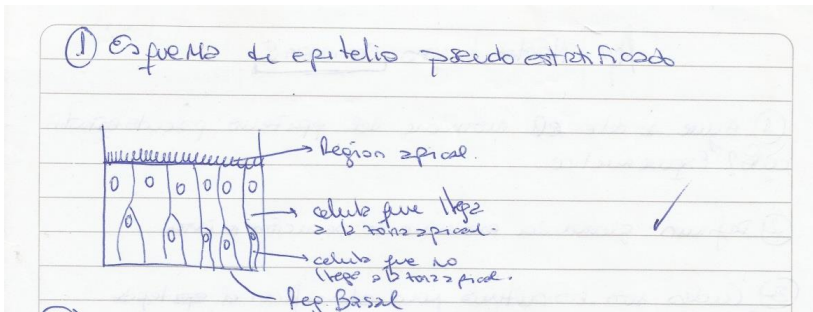 ① Esquema de epitelio pseudoestratificado
Region apical.
celula que llega
a la zona apical.
celula que no
llega a la zona apical.
Reg. Basal